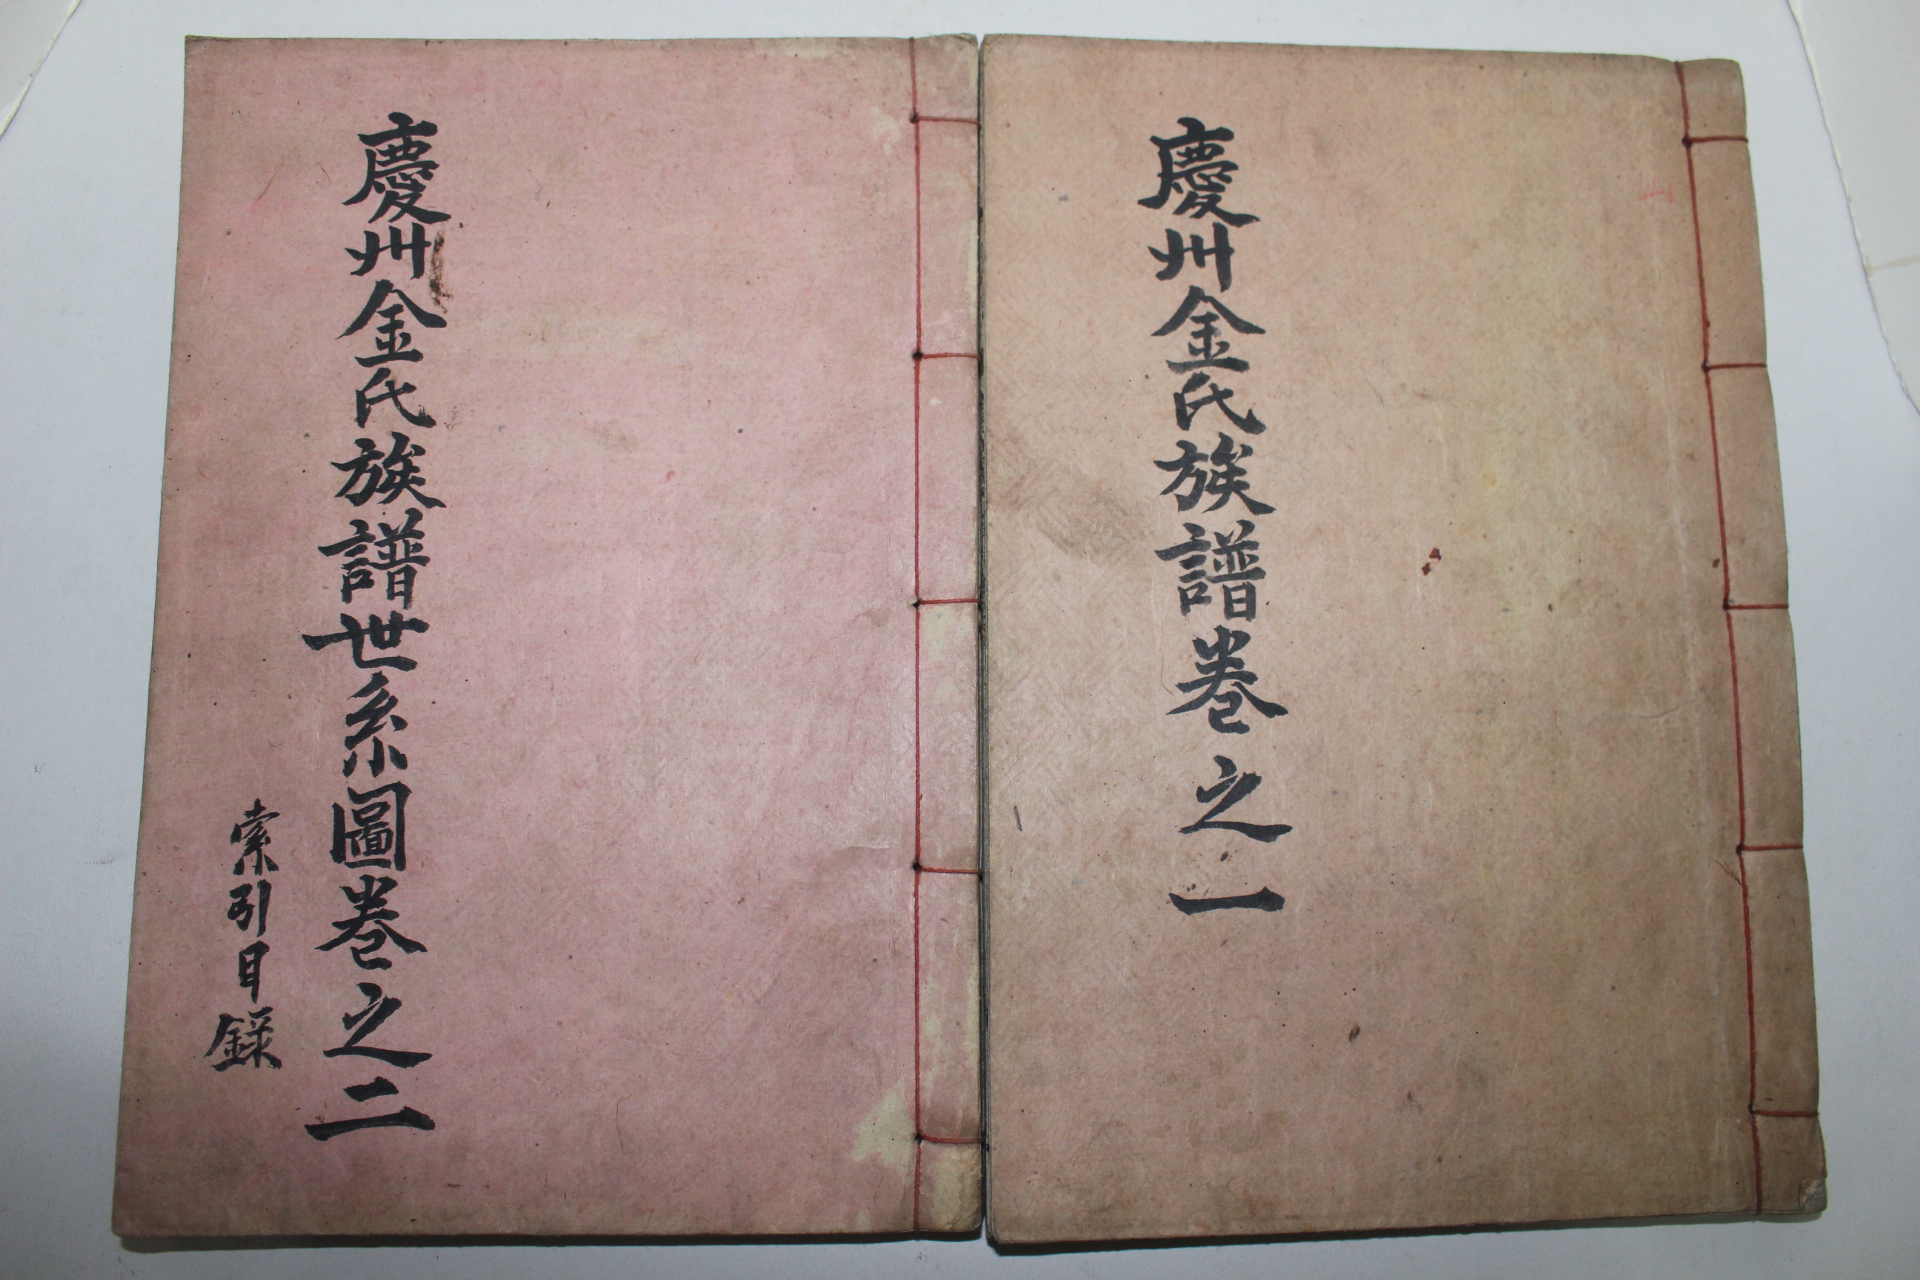 慶州金氏族譜卷之一
慶州金氏族譜世系圖卷之二
索引目錄